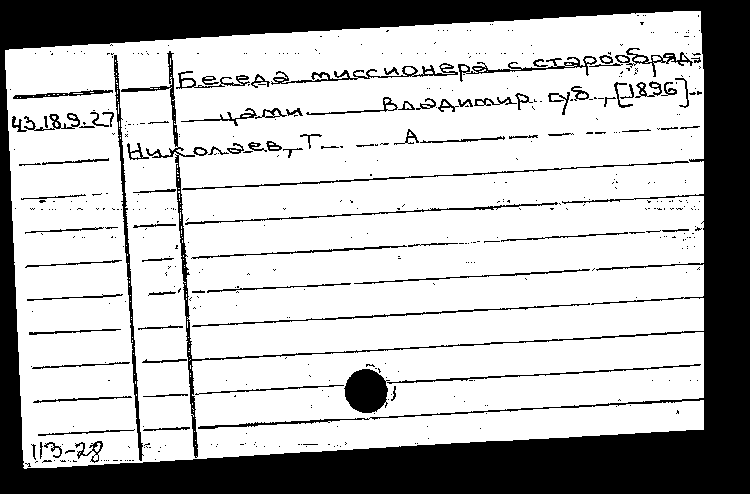 Беседа миссионера с старообряд=
43.18.9.27 цами. Владимир. губ., [1896]
Николаев, Т. А
113-28